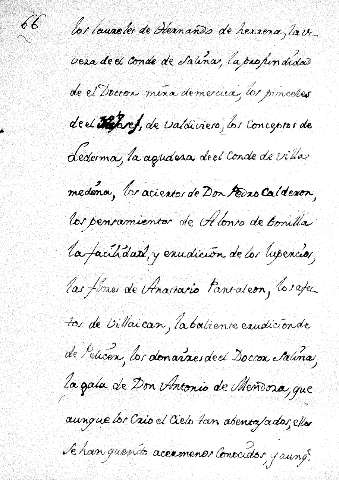 66
los laureles de Hernando de herrera, la vi-
veza de el Conde de Salinas, la profundidad
de el Doctor mira demescua, los pinceles
de el de Valdivieso, los Conceptos de
Ledesma, la agudeza de el Conde de Villa
mediana, los aciertos de Don Pedro Calderon,
los pensamientos de Alonso de bonilla
la facilidad, y erudición de los lupercios,
las flores de Anastasio Pantaleon, los afec-
tos de Villaizan, la baliente erudición de
de Pelicer, los donaires de el Doctor Salinas,
la gala de Don Antonio de Mendoza, que
aunque los Crio el Cielo tan abentajados, ellos
se han querido acer menos Conocidos, y aunq.